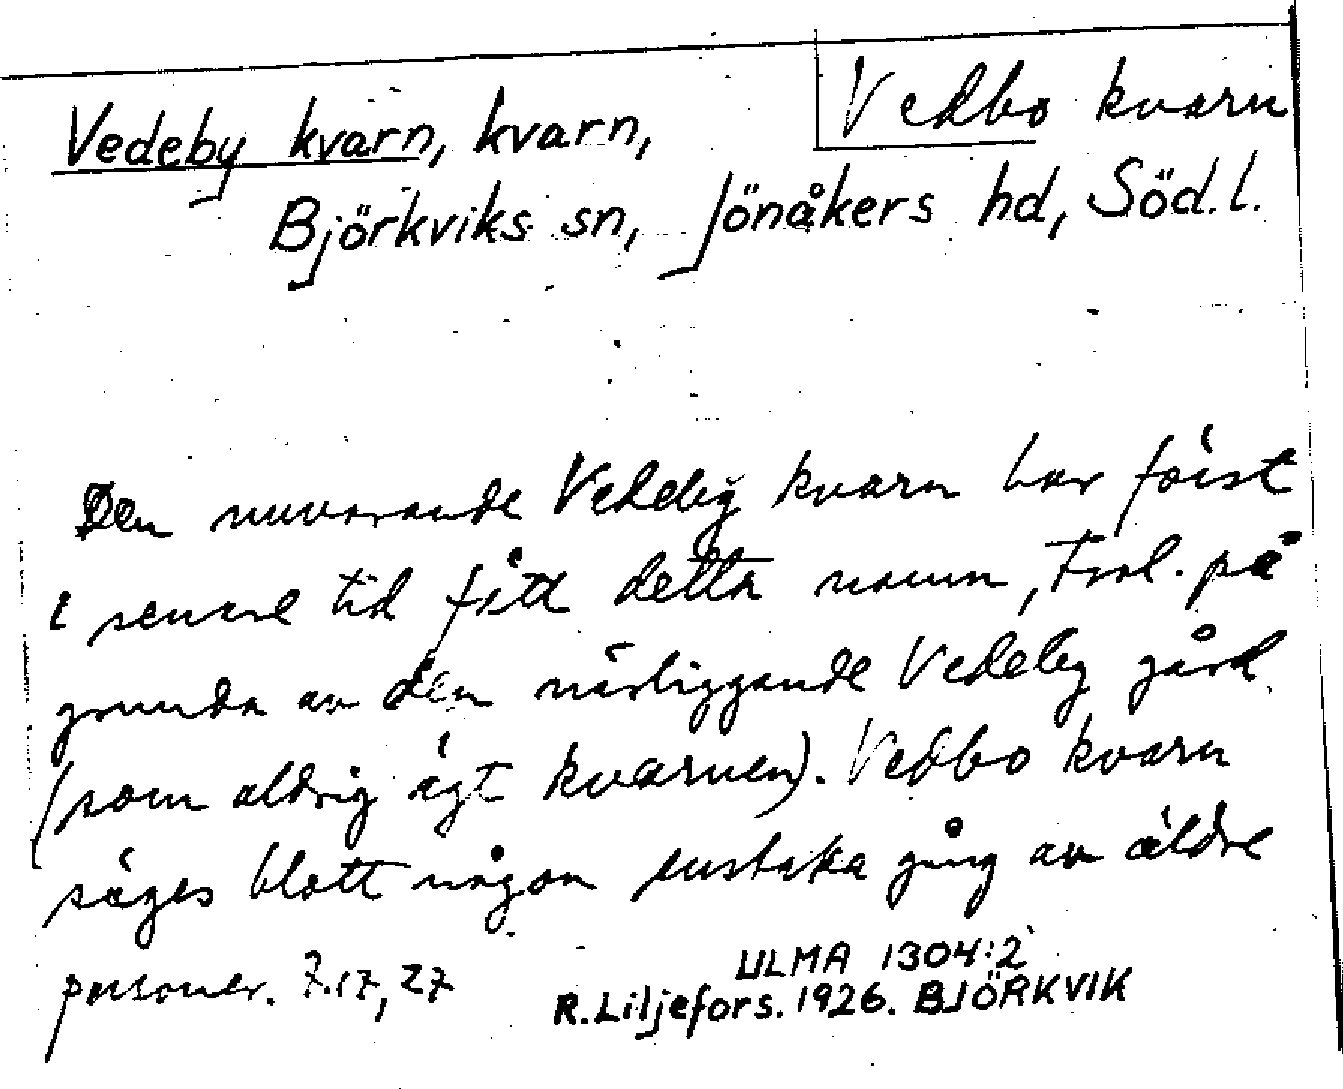 Vedbo kvarn
Vedeby kvarn, kvarn,
Björkviks sn, Jönåkers hd, Söd.l.
Den nuvarande Vedeby kvarn har först
i senare tid fått detta namn, trol. på
grund av den närliggande Vedeby gård
(som aldrig ägt kvarnen). Vedbo kvarn
säges blott någon enstaka gång av äldre
personer. 7.17, 27
ULMA 1304:2
R. Liljefors. 1926. BJÖRKVIK